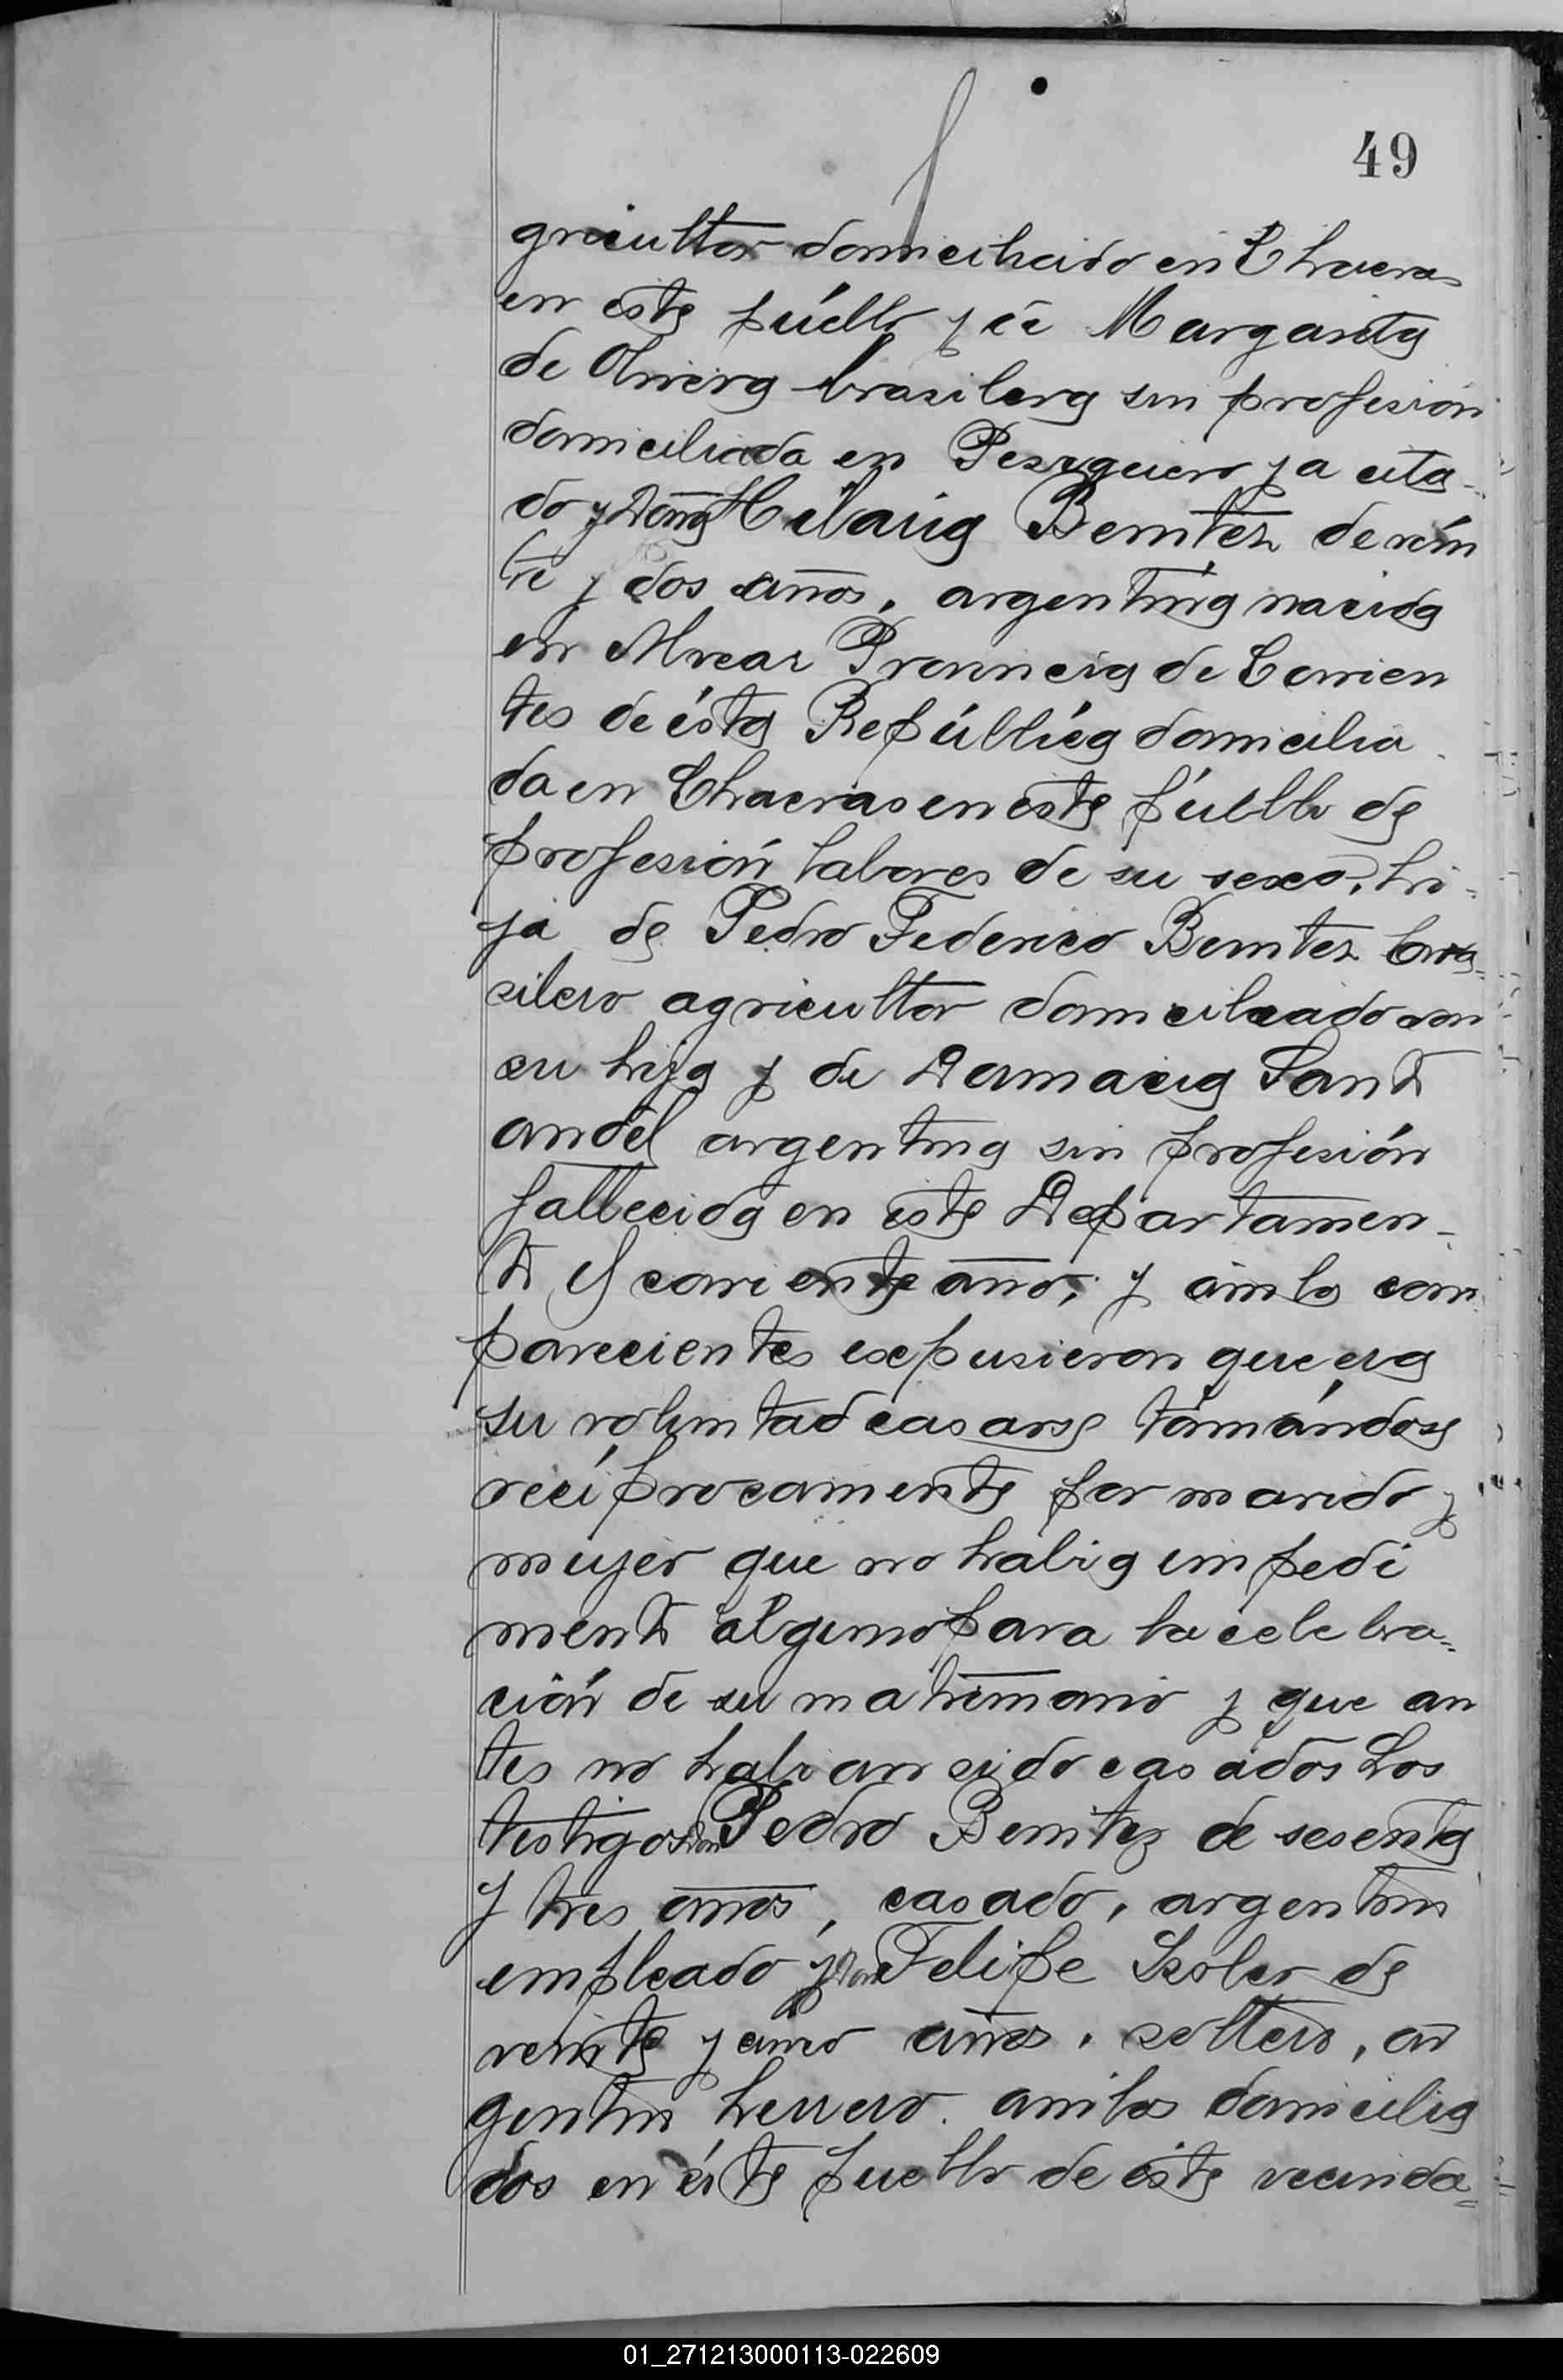 49
gricultor domiciliado en Chacras
en este pueblo y de Margarita
de Olivera brasilera sin profesión
domiciliada en Pesiguero ya cita-
do y Doña Hilaria Benitez de vein
te y dos años, argentina nacida
en Alvear Provincia de Corrien
tes de ésta República domicilia
da en Chacras en este pueblo de
profesión labores de su sexo, hi-
ja de Pedro Federico Benitez bra=
silero agricultor domiciliado con
su hija y de Damacia Sant
andel argentina sin profesión
fallecida en este Departamen-
to el corriente año; y ambos com
parecientes expusieron que era
su voluntad casarse tomándose
recíprocamente por marido y
mujer que no habia impedi
mento alguno para la celebra=
ción de su matrimonio y que an
tes no habian sido casados Los
testigos Don Pedro Benitez de sesenta
y tres años, casado, argentino
empleado y Don Felipe Scoler de
veinte y cinco años, soltero, ar
gentino herrero ambos domicilia
dos en éste pueblo de éste vecinda=
01_271213000113-022609